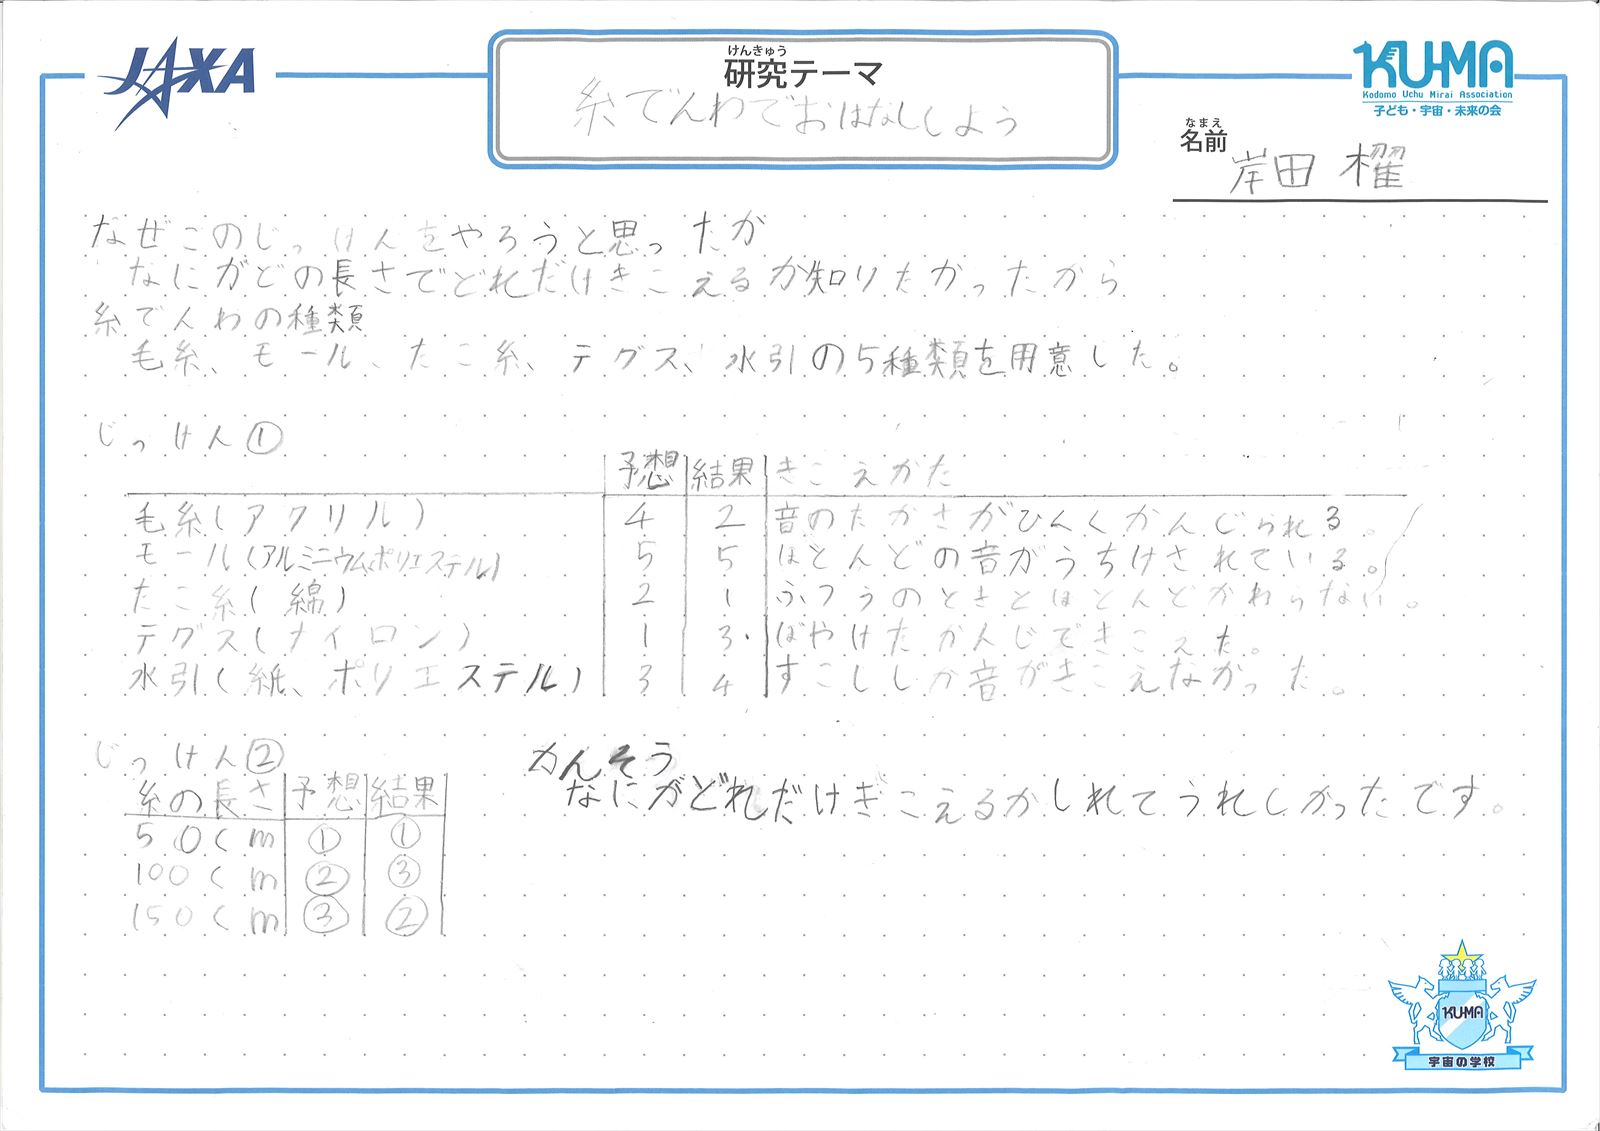 JAXA
けんきゅう
研究テーマ
糸でんわでおはなししよう
KU-MA
Kodomo Uchu Mirai Association
子ども・宇宙・未来の会
なまえ
名前
岸田 櫂
なぜこのじっけんをやろうと思ったか
なにがどの長さでどれだけきこえるか知りたかったから
糸でんわの種類
毛糸、モール、たこ糸、テグス、水引の5種類を用意した。
じっけん①
予想 結果 きこえかた
毛糸(アクリル) 4 2 音のたかさがひくくかんじられる。
モール(アルミニウム、ポリエステル) 5 5 ほとんどの音がうちけされている。
たこ糸(綿) 2 1 ふつうのときとほとんどかわらない。
テグス(ナイロン) 1 3 ばやけたかんじできこえた。
水引(紙、ポリエステル) 3 4 すこししか音がきこえなかった。
じっけん②
糸の長さ 予想 結果
50cm ① ①
100cm ② ③
150cm ③ ②
かんそう
なにがどれだけきこえるかしれてうれしかったです。
KUMA
宇宙の学校